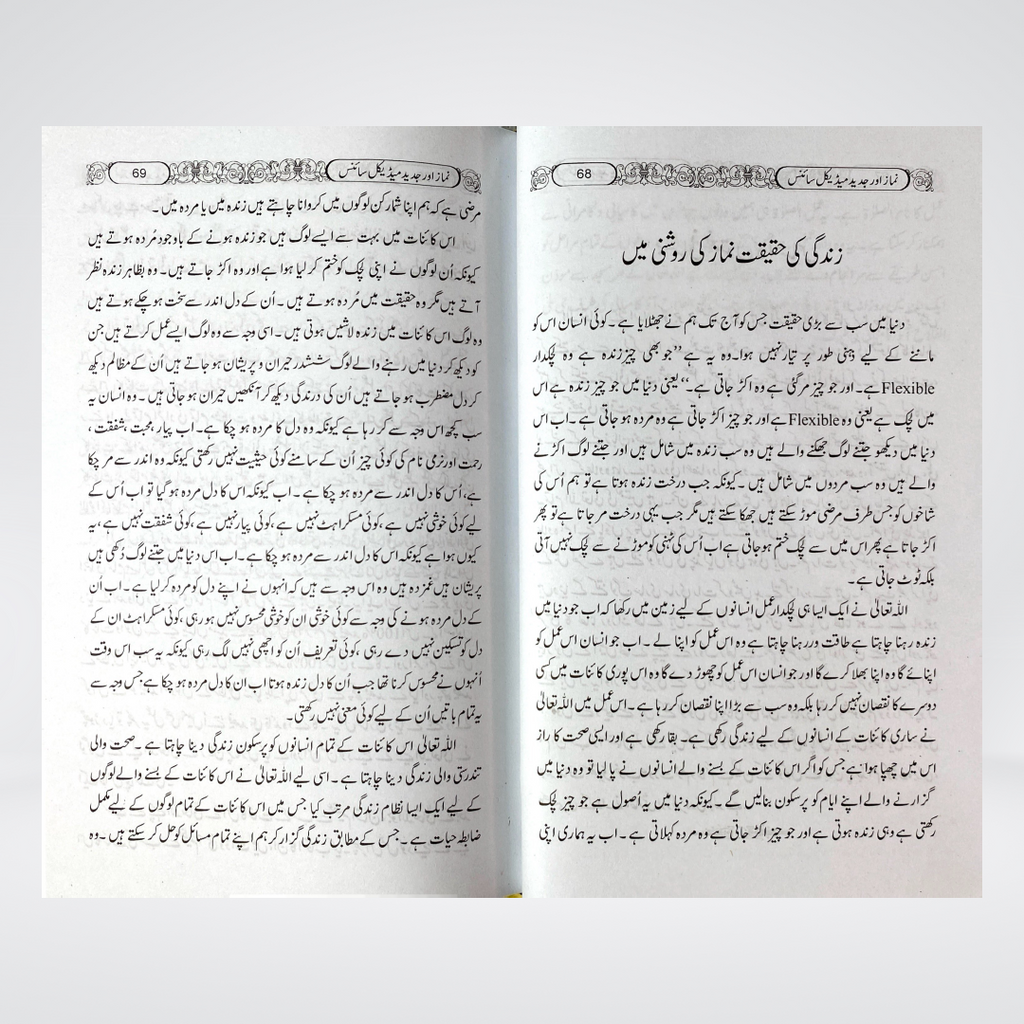 نماز اور جدید میڈیکل سائنس
68
زندگی کی حقیقت نماز کی روشنی میں
دنیا میں سب سے بڑی حقیقت جس کو آج تک ہم نے جھٹلایا ہے۔ کوئی انسان اس کو
ماننے کے لیے ذہنی طور پر تیار نہیں ہوا۔ وہ یہ ہے ”جو بھی چیز زندہ ہے وہ لچکدار
Flexible ہے۔ اور جو چیز مر گئی ہے وہ اکڑ جاتی ہے۔“ یعنی دنیا میں جو چیز زندہ ہے اس
میں لچک ہے یعنی وہ Flexible ہے اور جو چیز اکڑ جاتی ہے وہ مردہ ہو جاتی ہے۔ اب اس
دنیا میں دیکھو جتنے لوگ جھکنے والے ہیں وہ سب زندہ میں شامل ہیں اور جتنے لوگ اکڑنے
والے ہیں وہ سب مردوں میں شامل ہیں۔ کیونکہ جب درخت زندہ ہوتا ہے تو ہم اُس کی
شاخوں کو جس طرف مرضی موڑ سکتے ہیں جھکا سکتے ہیں مگر جب یہی درخت مر جاتا ہے تو پھر
اکڑ جاتا ہے پھر اس میں سے لچک ختم ہو جاتی ہے اب اُس کی ٹہنی کو موڑنے سے لچک نہیں آتی
بلکہ ٹوٹ جاتی ہے۔
اللہ تعالیٰ نے ایک ایسا ہی لچکدار عمل انسانوں کے لیے زمین میں رکھا کہ اب جو دنیا میں
زندہ رہنا چاہتا ہے طاقت ور رہنا چاہتا ہے وہ اس عمل کو اپنا لے۔ اب جو انسان اس عمل کو
اپنائے گا وہ اپنا بھلا کرے گا اور جو انسان اس عمل کو چھوڑ دے گا وہ اس پوری کائنات میں کسی
دوسرے کا نقصان نہیں کر رہا بلکہ وہ سب سے بڑا اپنا نقصان کر رہا ہے۔ اس عمل میں اللہ تعالیٰ
نے ساری کائنات کے انسانوں کے لیے زندگی رکھی ہے۔ بقا رکھی ہے اور ایسی صحت کا راز
اس میں چھپا ہوا ہے جس کو اگر اس کائنات کے بسنے والے انسانوں نے پا لیا تو وہ دنیا میں
گزارنے والے اپنے ایام کو پرسکون بنالیں گے۔ کیونکہ دنیا میں یہ اُصول ہے جو چیز لچک
رکھتی ہے وہی زندہ ہوتی ہے اور جو چیز اکڑ جاتی ہے وہ مردہ کہلاتی ہے۔ اب یہ ہماری اپنی
نماز اور جدید میڈیکل سائنس
69
مرضی ہے کہ ہم اپنا شمار کن لوگوں میں کروانا چاہتے ہیں زندہ میں یا مردہ میں۔
اس کائنات میں بہت سے ایسے لوگ ہیں جو زندہ ہونے کے باوجود مُردہ ہوتے ہیں
کیونکہ اُن لوگوں نے اپنی لچک کو ختم کر لیا ہوا ہے اور وہ اکڑ جاتے ہیں۔ وہ بظاہر زندہ نظر
آتے ہیں مگر وہ حقیقت میں مُردہ ہوتے ہیں۔ اُن کے دل اندر سے سخت ہو چکے ہوتے ہیں
وہ لوگ اس کائنات میں زندہ لاشیں ہوتی ہیں۔ اسی وجہ سے وہ لوگ ایسے عمل کرتے ہیں جن
کو دیکھ کر دنیا میں رہنے والے لوگ ششدر حیران و پریشان ہو جاتے ہیں اُن کے مظالم دیکھ
کر دل مضطرب ہو جاتے ہیں اُن کی درندگی دیکھ کر آنکھیں حیران ہو جاتی ہیں۔ وہ انسان یہ
سب کچھ اس وجہ سے کر رہا ہے کیونکہ وہ دل کا مردہ ہو چکا ہے۔ اب پیار، محبت، شفقت،
رحمت اور نرمی نام کی کوئی چیز اُن کے سامنے کوئی حیثیت نہیں رکھتی کیونکہ وہ اندر سے مر چکا
ہے، اُس کا دل اندر سے مردہ ہو چکا ہے۔ اب کیونکہ اس کا دل مردہ ہو گیا تو اب اُس کے
لیے کوئی خوشی نہیں ہے، کوئی مسکراہٹ نہیں ہے، کوئی پیار نہیں ہے، کوئی شفقت نہیں ہے، یہ
کیوں ہوا ہے کیونکہ اس کا دل اندر سے مردہ ہو چکا ہے۔ اب اس دنیا میں جتنے لوگ دُکھی ہیں
پریشان ہیں غمزدہ ہیں وہ اس وجہ سے ہیں کہ انہوں نے اپنے دل کو مردہ کر لیا ہے۔ اب اُن
کے دل مردہ ہونے کی وجہ سے کوئی خوشی اُن کو خوشی محسوس نہیں ہو رہی، کوئی مسکراہٹ ان کے
دل کو تسکین نہیں دے رہی، کوئی تعریف اُن کو اچھی نہیں لگ رہی کیونکہ یہ سب اس وقت
اُنہوں نے محسوس کرنا تھا جب اُن کا دل زندہ ہوتا اب ان کا دل مردہ ہو چکا ہے جس وجہ سے
یہ تمام باتیں اُن کے لیے کوئی معنی نہیں رکھتی۔
اللہ تعالیٰ اس کائنات کے تمام انسانوں کو پرسکون زندگی دینا چاہتا ہے۔ صحت والی
تندرستی والی زندگی دینا چاہتا ہے۔ اسی لیے اللہ تعالیٰ نے اس کائنات کے بسنے والے لوگوں
کے لیے ایک ایسا نظام زندگی مرتب کیا جس میں اس کائنات کے تمام لوگوں کے لیے مکمل
ضابطہ حیات ہے۔ جس کے مطابق زندگی گزار کر ہم اپنے تمام مسائل کو حل کر سکتے ہیں۔ وہ